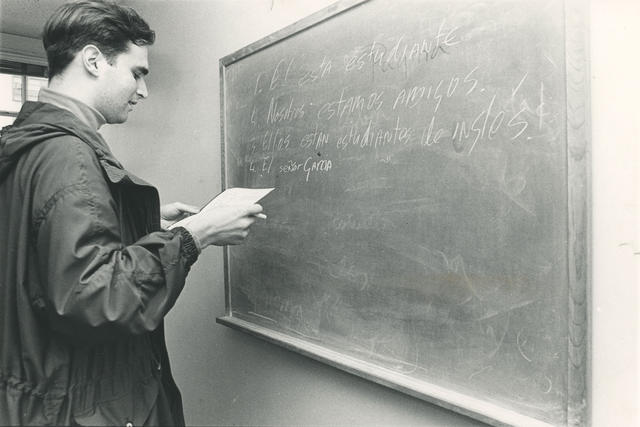 1. El esta estudiante
Nosotros estamos amigos.
Ellos están estudiantes de inglés.
4. El señor García